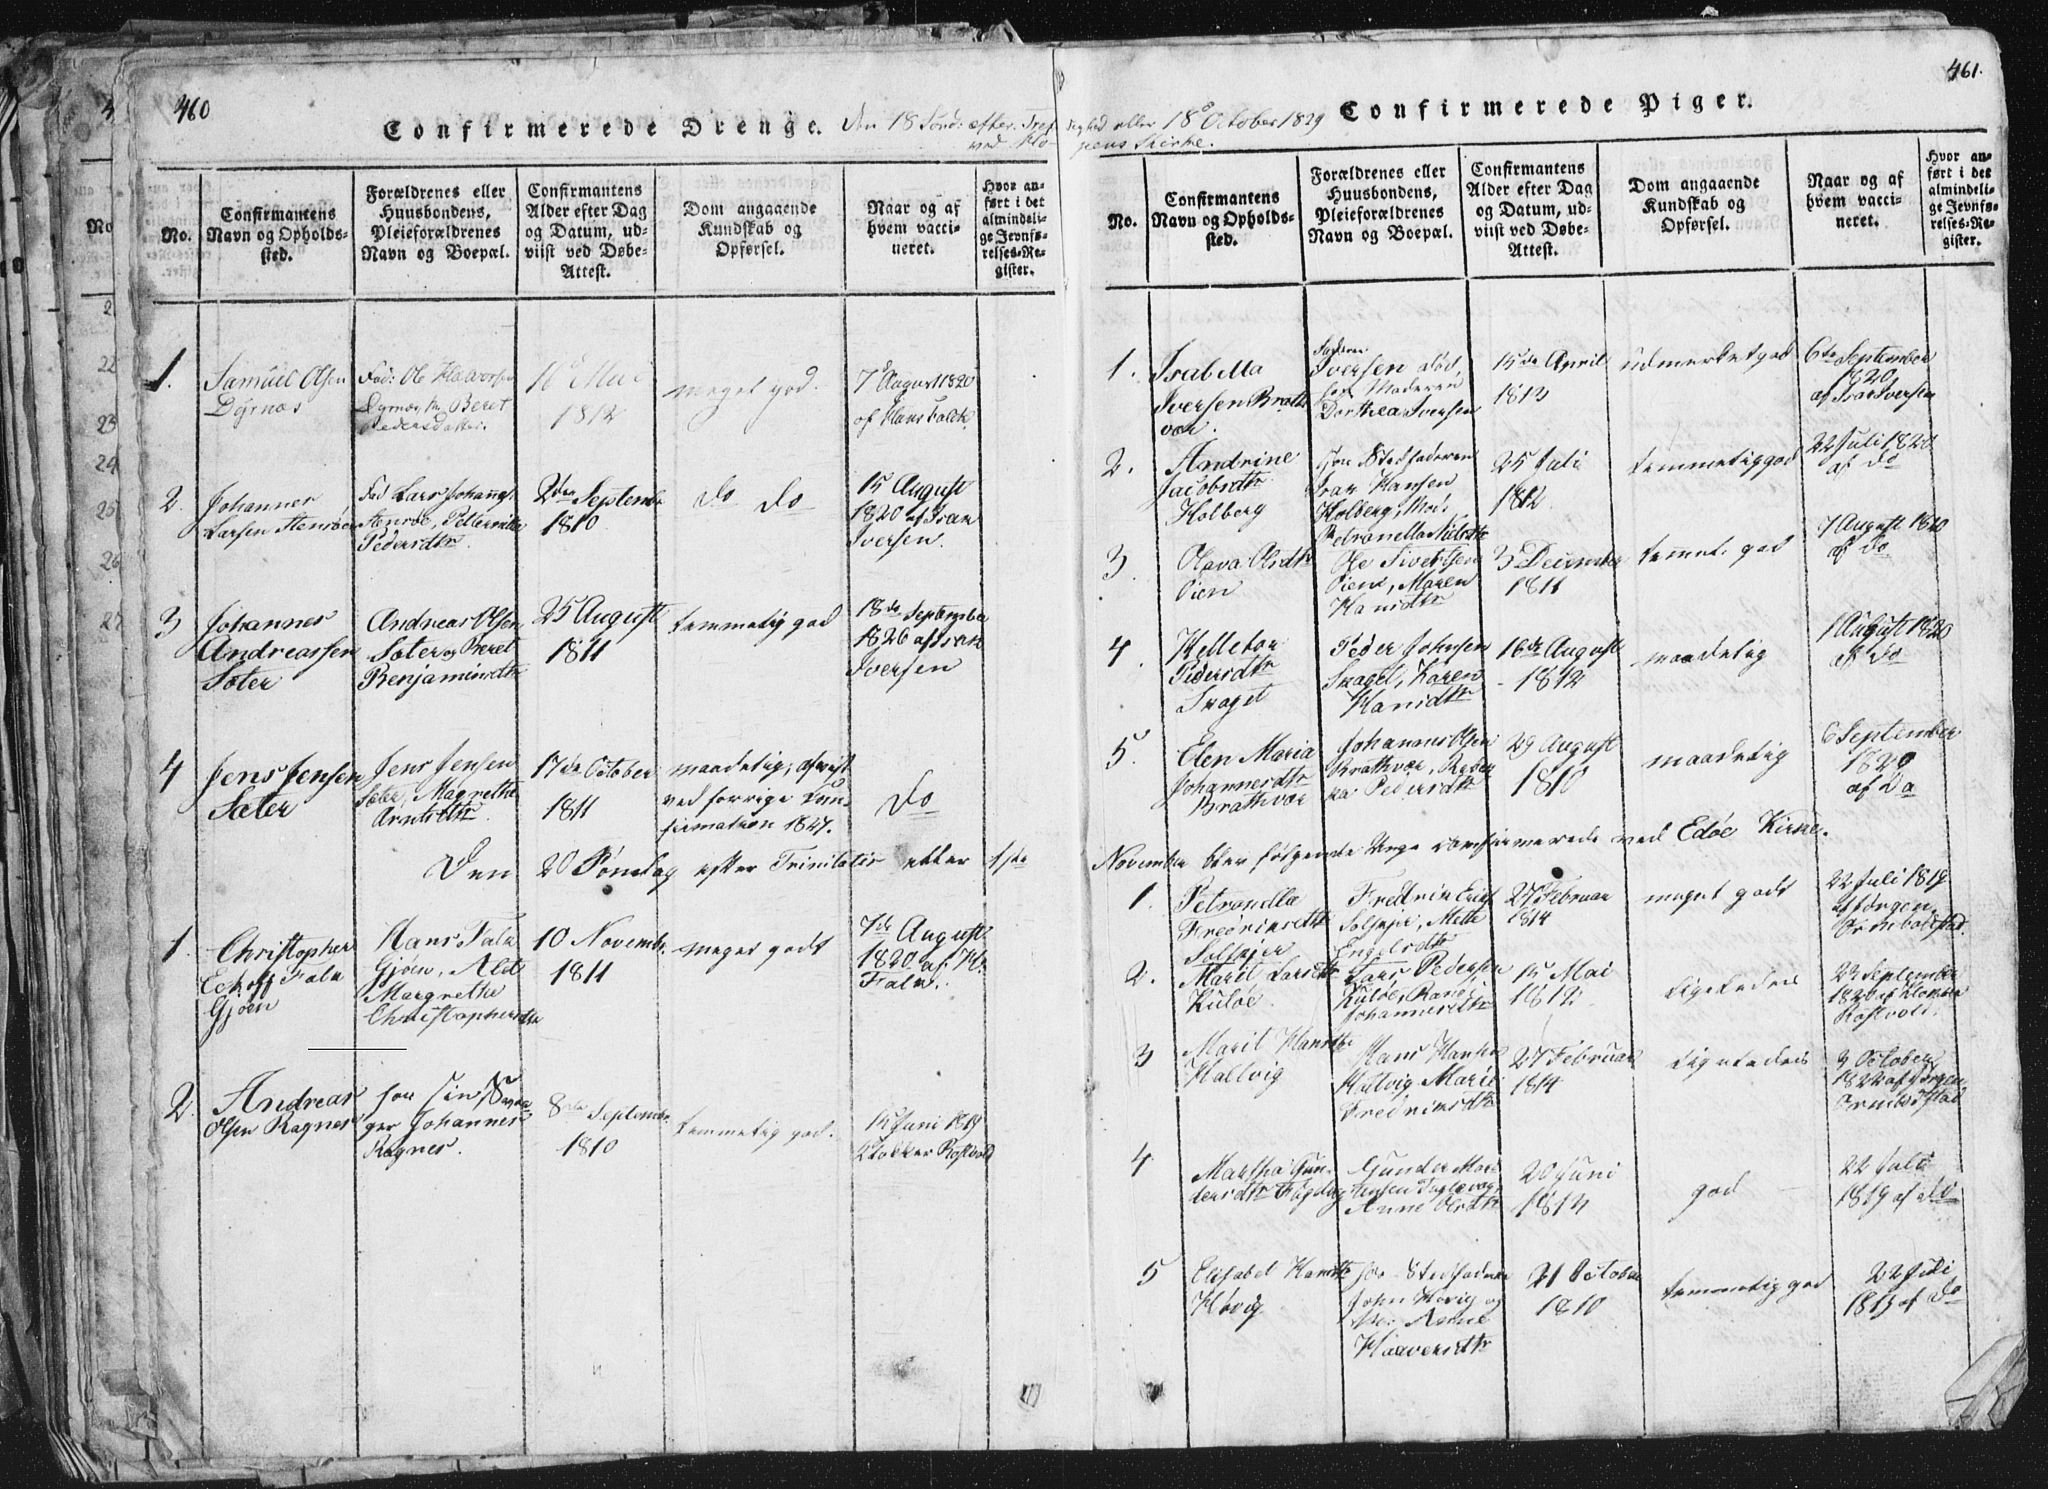 460
Confirmerede Drenge.
Den 18 Sønd: efter Tref
ved Ho-
No.
Confirmantens
Navn og Opholds-
sted.
Forældrenes eller
Huusbondens,
Pleieforældrenes
Navn og Boepæl.
Confirmantens
Alder efter Dag
og Datum, ud-
viist ved Døbe-
Attest.
Dom angaaende
Kundskab og
Opførsel.
Naar og af
hvem vacci-
neret.
Hvor an-
ført i det
almindeli-
ge Jevnfø-
relses-Re-
gister.
1.
Samuel Olsen
Dyrnæs
Fad: Ole
Beret
Pedersdatter.
Mai
1812
meget god.
7de August 1820
af Hans Falck
2.
Johannes
Larsen Stensøe
Fad Lars Johans:
Stensøe,
Pedersdtr.
2den Septembr
1810
do do
15 August
1820 af Ivar
Iversen.
3
Johannes
Andreassen
Sæter
Andreas Olsen
Sæter og Beret
Benjaminsdtr
25 August
1811
temmelig god
18de September
1820 af Ivar
Iversen
4
Jens Jensen
Sæter
Jens Jensen
Sæter, Magrethe
Arntsdtr.
17de October
1811
maadelig, afviist
ved forrige Con-
firmation 1827.
do
Den 20 Søndag efter Trinitatis eller 1ste
1.
Christopher
Eckhoff Falk
Gjøen
Hans Falk
Gjøen, Alet
Margrethe
Christophersdtr
10 Novembr.
1811
meget godt
7de August
1820 af H.
Falk.
2.
Andreas
Olsen Ragnes
hos sin Svo-
ger Johannes
Ragnes.
8de Septembr.
1810
temmelig god.
15 Juni 1819
Klokker Rostvold
461.
Confirmerede Piger.
oldighed eller 18de October 1829
pens Kirke.
No.
Confirmantens
Navn og Opholds-
sted.
Forældrenes eller
Huusbondens,
Pleieforældrenes
Navn og Boepæl.
Confirmantens
Alder efter Dag
og Datum, ud-
viist ved Døbe-
Attest.
Dom angaaende
Kundskab og
Opførsel.
Naar og af
hvem vacci-
neret.
Hvor an-
ført i det
almindeli-
ge Jevnfø-
relses-Re-
gister.
1.
Isabella
Iversen Bratt-
vær.
Faderen
Iversen død,
hos Moderen
Dorthea Iversen
15de April
1812
udmerket god
6te September
1820
af Ivar Iversen
2.
Andrine
Jacobsdtr
Holberg
hos Stedfaderen
Ivar Hansen
Holberg, Mod:
Petronella Nielsdtr
25 Juli
1812
temmelig god
22 Juli 1820
af do
3.
Olava Olsdtr
Oien
Ole Sivertsen
Oien, Maren
Hansdtr
3 December
1811
temmel. god
7 August 1820
af do
4.
Pedersdtr
Skaget
Peder Johnsen
Skaget, Karen
Hansdtr
16de August
1812
maadelig
1 August 1820
af do
5.
Elen Maria
Johannesdtr
Brattvær
Johannes Olsen
Brattvær, Rebek
ka Pedersdtr
29 August
1810
maadelig
6 September
1820
af do
November blev følgende Unge confirmerede ved Edøe Kirke.
1.
Petronella
Fredriksdtr
Solskjer
Fredrik Erics:
Solskjer, Mette
Engelsdtr
27 Februar
1814
meget godt
22 Juli 1819
af Jørgen
Ormbostad.
2.
Marit Larsdtr
Kuløe.
Lars Pedersen
Kuløe, Randi
Johannesdtr
15 Mai
1812
ligeledes
22 September
1820 af Klokker
Rostvold.
3
Marit Hansdtr
Hallvig
Hans Hansen
Hallvig Marie
Fredriksdtr
27 Februar
1814
ligeledes
9 October
1822 af Jørgen
Ormbostad
4
Martha Gun-
dersdtr
Gunder
Anne Olsdtr
20 Juni
1812
god
22 Juli
1819 af do
5
Elisabet Hansdtr
Høvig
hos Stedfaderen
John Høvig og
Mo: Anne
Halversdtr
21 October
1810
temmelig god
22 Juli
1819 af do